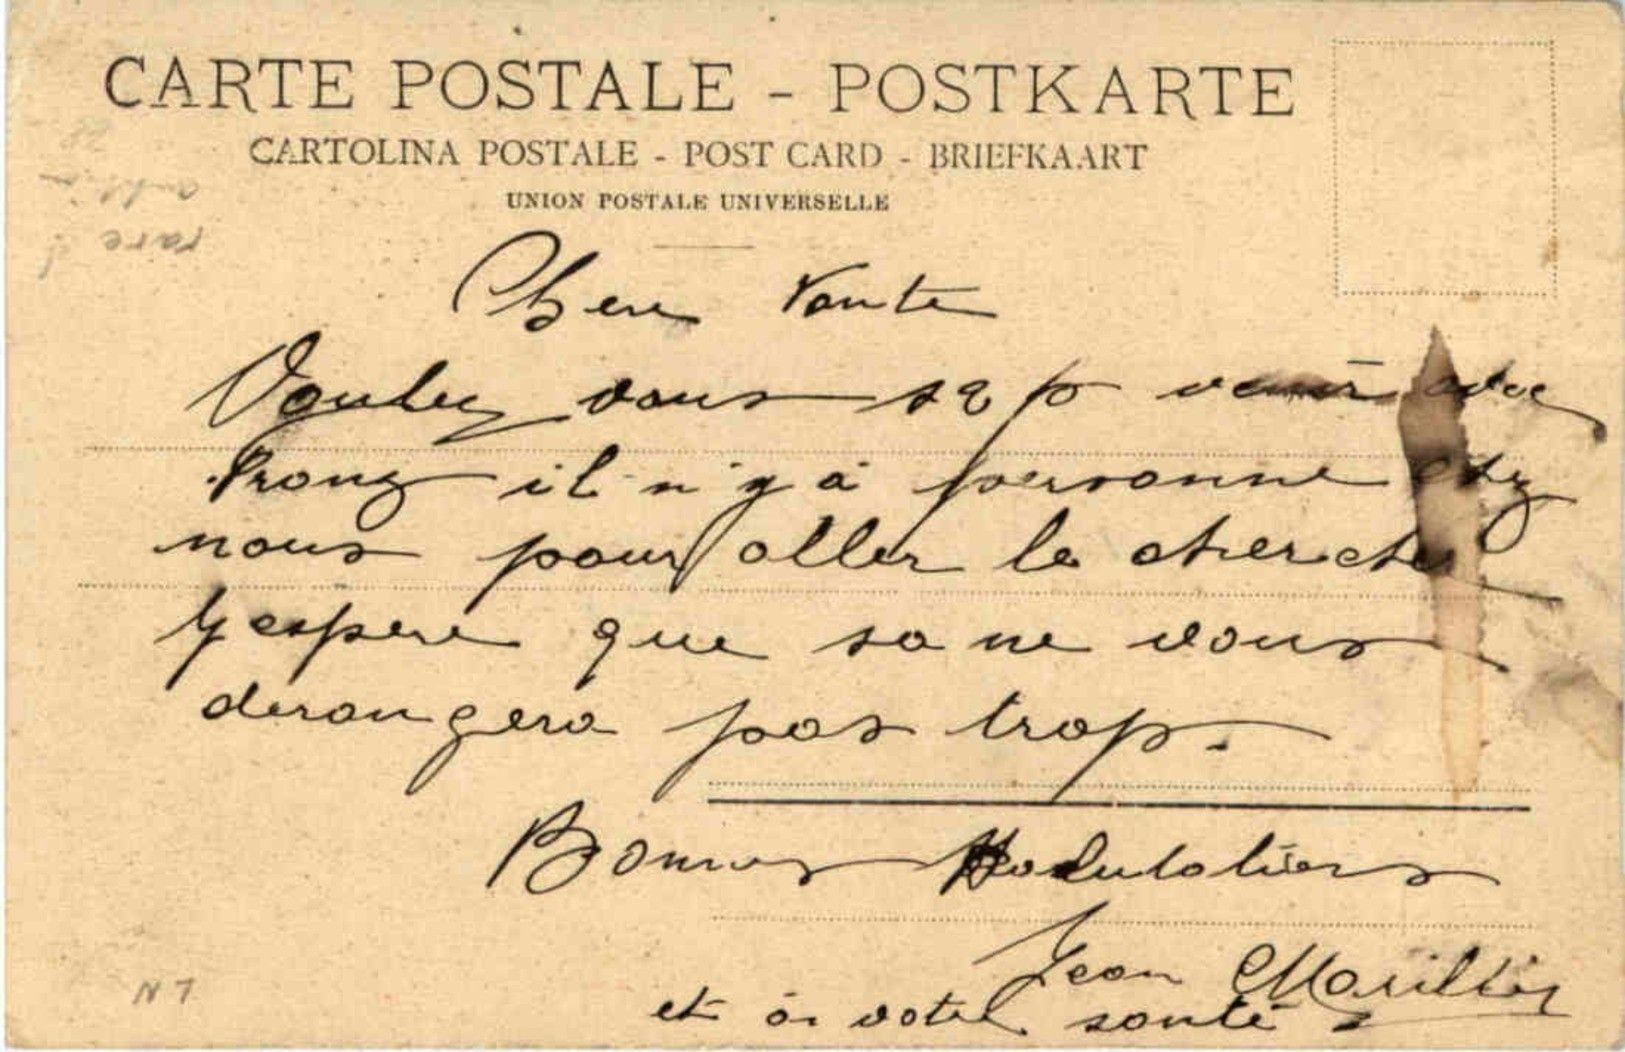 CARTE POSTALE - POSTKARTE
CARTOLINA POSTALE - POST CARD - BRIEFKAART
UNION POSTALE UNIVERSELLE
rare !
Chere Tante
Voulez vous s v p venir
il n'y a personne chez
nous pour aller le chercher
J espere que sa ne vous
derangera pas trop.
Bonnes Salutations
Jean
et à votre santé
N 7